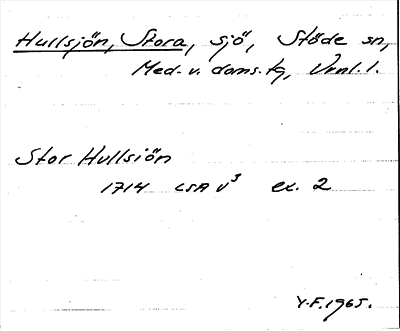 Hullsjön, Stora, sjö, Stöde sn,
Med. v. doms. tg, Vrnl. l.
Stor Hullsiön
1714 LSA V³ ex. 2
Y.F. 1965.